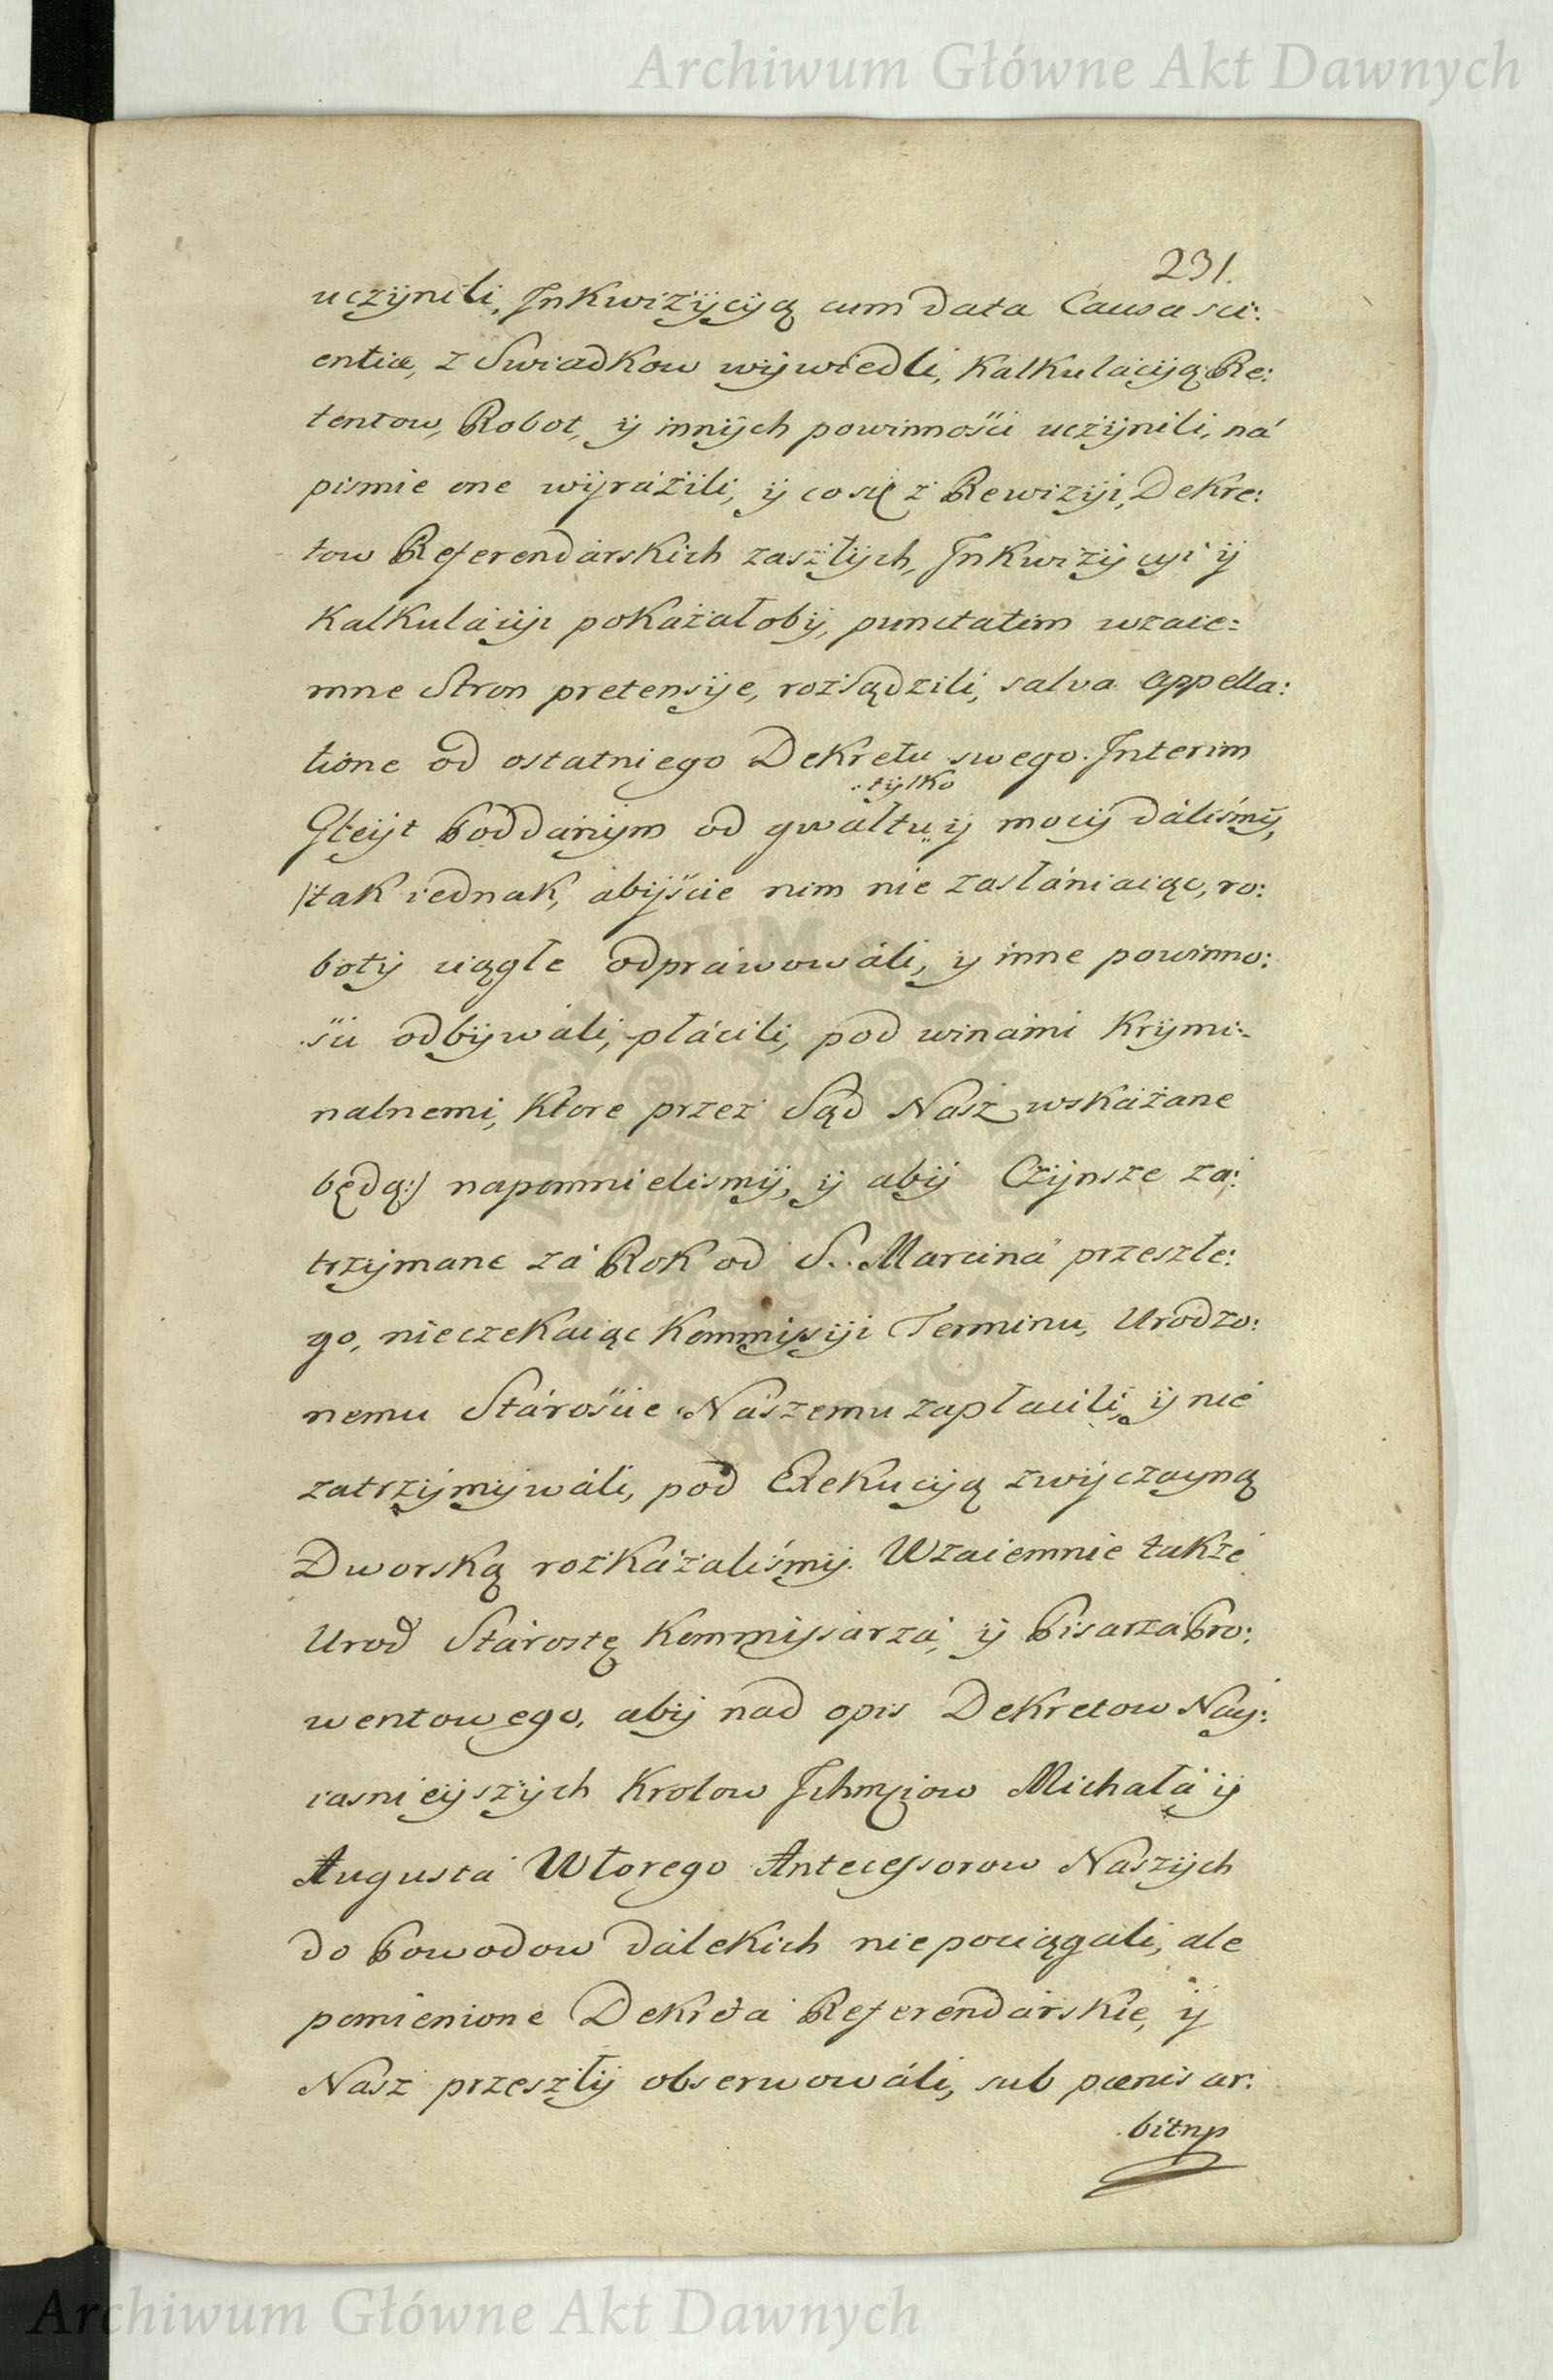 Archiwum Główne Akt Dawnych
231.
uczÿnili, InKwizÿcÿą cum data Causa sci:
entiæ, z SwiadKow wÿwiedli, KalKulacÿą Re:
tentow, Robot, ÿ innÿch powinnosci uczÿnili, ná
pismie one wÿráźili, ÿ co się z Rewizÿi, DeKre:
tow ReferendársKich zaszłÿch, InKwizÿcÿi ÿ
KalKulácÿi poKazałobÿ, punctatim wzaie:
mne Stron pretensÿe, rozsądzili, salva appella:
tione od ostatniego DeKretu swego. Interim
tÿlKo
Gleÿt Poddánÿm od gwałtu ÿ mocÿ daliśmÿ,
/:taK iednaK, abÿście nim nie zasłániaiąc, ro:
botÿ ciągłe odpráwowáli, ÿ inne powinno:
ści odbÿwali, płácili, pod winámi Krÿmi:
nalnemi, Ktore przez Sąd Nasz wsKázane
będą:/ napomnielismÿ, ÿ abÿ Czÿnsze za:
trzÿmane zá RoK od S. Marciná przeszłe:
go, nieczeKaiąc Kommissÿi Terminu, Urodzo:
nemu Stároście Nászemu zapłacili, ÿ nie
zatrzÿmÿwáli, pod ExeKucÿą zwÿczaÿną
DworsKą rozKázaliśmÿ. Wzaiemnie taKże
Urod Stárostę Kommissárzá, ÿ Pisarza Pro:
wentowego, abÿ nad opis DeKretow Naÿ:
iasnieÿszÿch Krolow Ichmciow Michałá ÿ
Augustá Wtorego Antecessorow Naszÿch
do Powodow dálekich niepociągali, ale
pomienione DeKretá ReferendársKie, ÿ
Nasz przeszłÿ obserwowáli, sub pœnis ar:
bitrÿ
Archiwum Główne Akt Dawnych